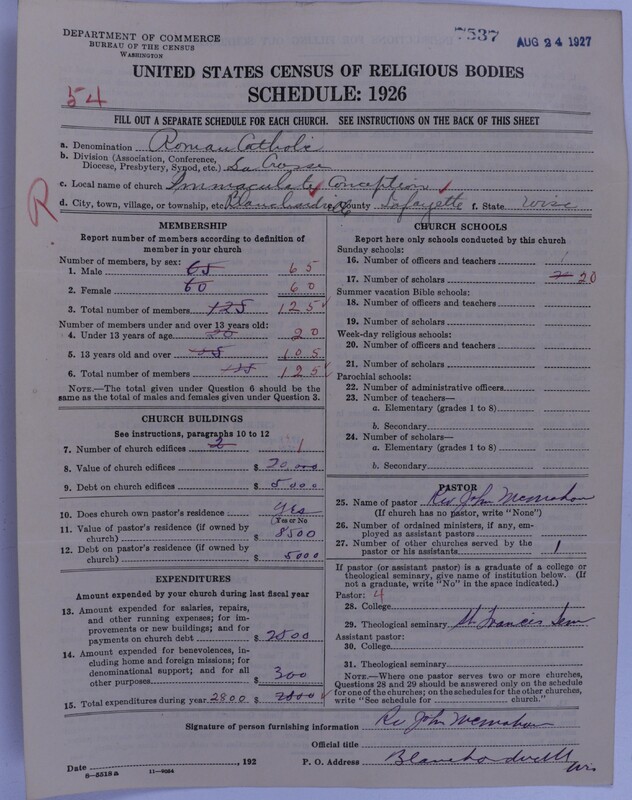 DEPARTMENT OF COMMERCE
BUREAU OF THE CENSUS
WASHINGTON
7537
AUG 24 1927
UNITED STATES CENSUS OF RELIGIOUS BODIES
SCHEDULE: 1926
54
FILL OUT A SEPARATE SCHEDULE FOR EACH CHURCH. SEE INSTRUCTIONS ON THE BACK OF THIS SHEET
a. Denomination Roman Catholic
b. Division (Association, Conference, Diocese, Presbytery, Synod, etc.) La Crosse
c. Local name of church Immaculate Conception
R
d. City, town, village, or township, etc. Blanchardville County Lafayette f. State Wisc
MEMBERSHIP
Report number of members according to definition of member in your church
Number of members, by sex:
1. Male 65 65
2. Female 60 60
3. Total number of members 125 125
Number of members under and over 13 years old:
4. Under 13 years of age 20 20
5. 13 years old and over 105
6. Total number of members 125
NOTE.—The total given under Question 6 should be the same as the total of males and females given under Question 3.
CHURCH BUILDINGS
See instructions, paragraphs 10 to 12
7. Number of church edifices 2 1
8. Value of church edifices $ 20,000
9. Debt on church edifices $ 5000
10. Does church own pastor's residence: Yes
(Yes or No
11. Value of pastor's residence (if owned by church) $ 8500
12. Debt on pastor's residence (if owned by church) $ 5000
EXPENDITURES
Amount expended by your church during last fiscal year
13. Amount expended for salaries, repairs, and other running expenses; for improvements or new buildings; and for payments on church debt $ 2500
14. Amount expended for benevolences, including home and foreign missions; for denominational support; and for all other purposes $ 300
15. Total expenditures during year 2800 $ 2800
CHURCH SCHOOLS
Report here only schools conducted by this church
Sunday schools:
16. Number of officers and teachers 1
17. Number of scholars 20
Summer vacation Bible schools:
18. Number of officers and teachers
19. Number of scholars
Week-day religious schools:
20. Number of officers and teachers
21. Number of scholars
Parochial schools:
22. Number of administrative officers
23. Number of teachers—
a. Elementary (grades 1 to 8)
b. Secondary
24. Number of scholars—
a. Elementary (grades 1 to 8)
b. Secondary
PASTOR
25. Name of pastor Rev John McMahon
(If church has no pastor, write "None")
26. Number of ordained ministers, if any, employed as assistant pastors
27. Number of other churches served by the pastor or his assistants 1
If pastor (or assistant pastor) is a graduate of a college or theological seminary, give name of institution below. (If not a graduate, write "No" in the space indicated.)
Pastor: 4
28. College
29. Theological seminary St Francis Sem
Assistant pastor:
30. College
31. Theological seminary
NOTE.—Where one pastor serves two or more churches, Questions 28 and 29 should be answered only on the schedule for one of the churches; on the schedules for the other churches, write "See schedule for church."
Signature of person furnishing information Rev John McMahon
Official title
Date , 192 P. O. Address Blanchardville Wis
8—5518 a 11—9024